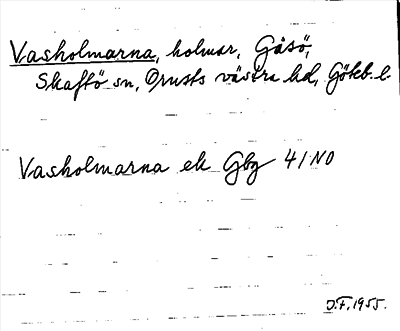 Vasholmarna, holmar, Gåsö,
Skaftö sn, Orusts västra hd, Göteb. l.
Vasholmarna ek Gbg 41 NO
J.F. 1955.